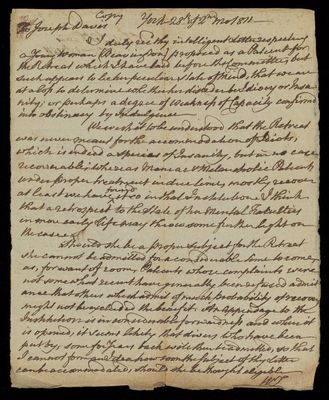 Copy York 28th of 2d mo 1811
To Joseph Davis
I duly rec'd thy intelligent letter respecting
a Young Woman proposed as a Patient for
the Retreat which I have laid before the Committee, but
such appears to be her peculiar State of Mind, that we are
at a loss to determine whether her disorder be Idiocy or Insa-
nity; or perhaps a degree of Weakness of Capacity confirmed
into obstinacy by Indulgence
We wish it to be understood that the Retreat
was never meant for the accommodation of Idiots,
which is indeed a Species of Insanity, but in no case
recoverable; whereas Maniac & Melancholic Patients
under proper treatment in due time, mostly recover
at least we have found it so in that Institution. I think
that a retrospect to the State of her Mental Faculties
in more early life may throw some further light on
the case.
Should she be a proper Subject for the Retreat
she cannot be admitted for a considerable time to come,
as, for want of room, Patients whose complaints were
not somewhat recent have generally been refused admit
ance that others who admit of much probability of recovery
might not be excluded the benefit. An appendage to the
Institution is in considerable forwardness and when it
is opened, it seems likely that divers who have been
put by, some for Years back will soon be admitted, so that
I cannot form an idea how soon the subject of thy letter
can be accommodated, should she be thought eligible